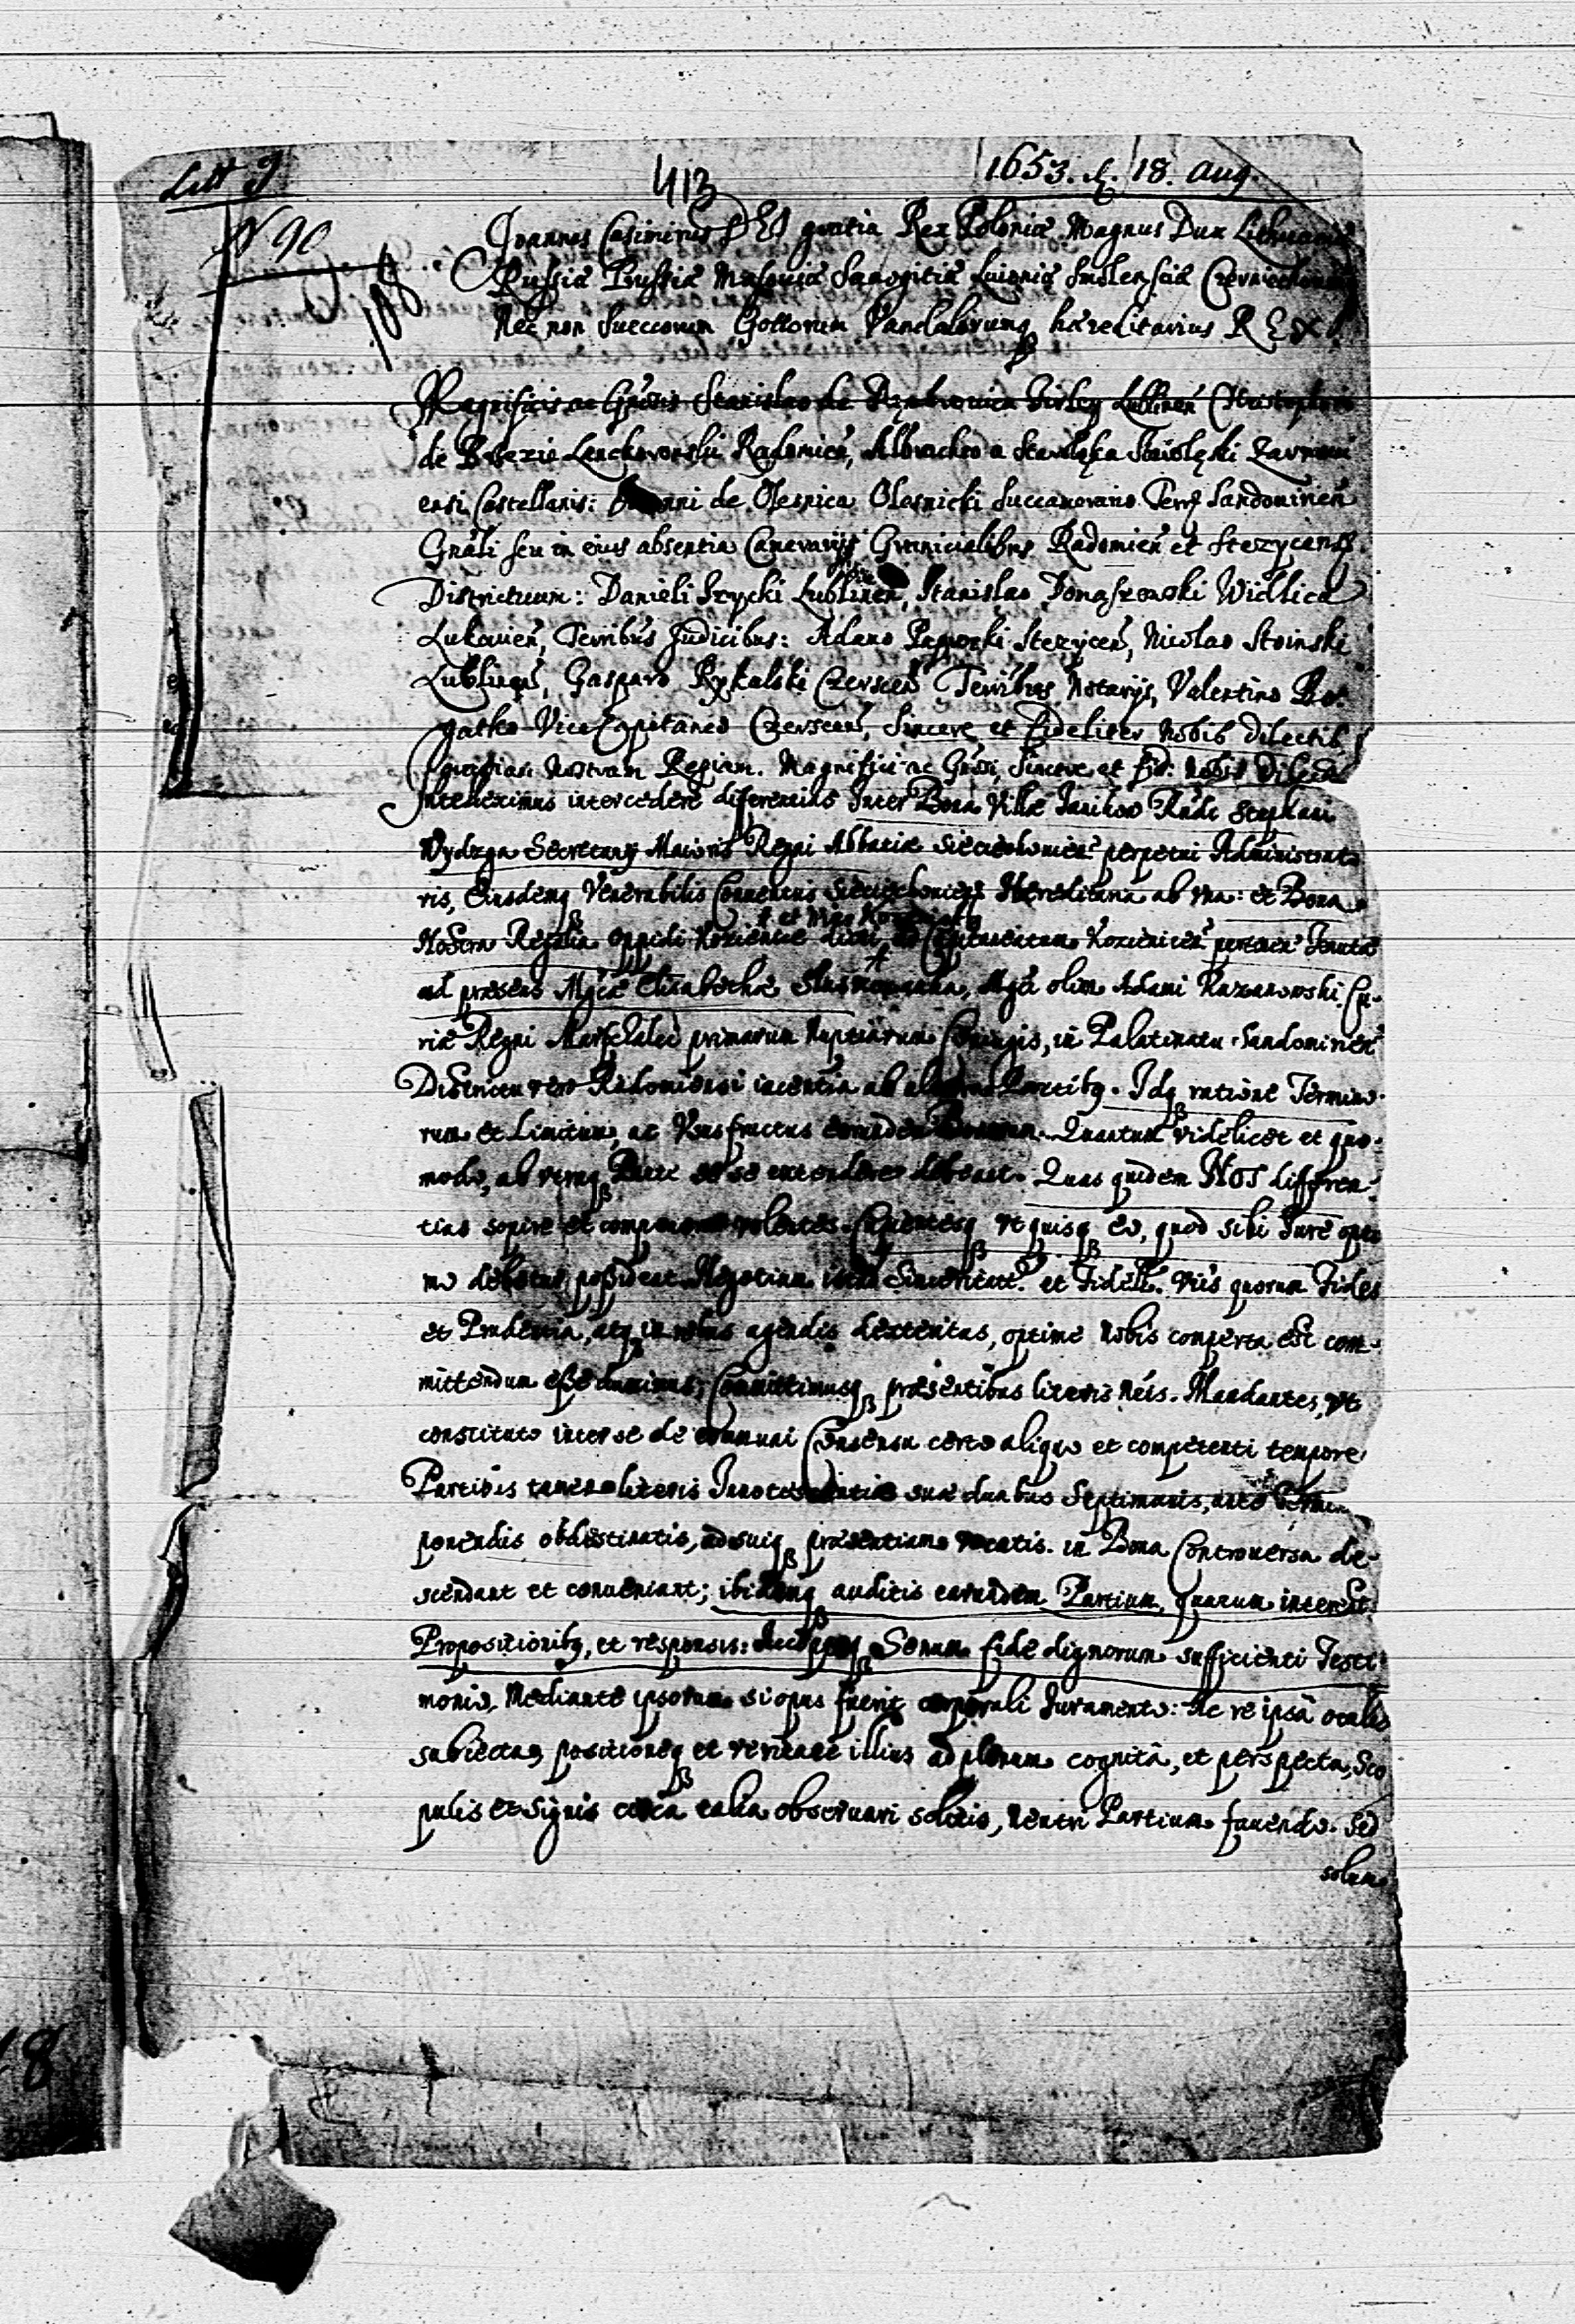 Litt 9
413
1653. d. 18. Aug.
N 90
Joannes Casimirus DEI gratia Rex Poloniæ Magnus Dux Lithuaniæ
Russiæ Prussiæ Masouiæ Samogitiæ Liuoniæ Smolensciæ Czerniechouiæ
Nec non Suecorum Gottorum Vandalorumq hæreditarius REX.
Magnificis ac Gnosis Stanislao de Dąmbrouica Firley Lublinen Christophoro
de Brzezie Lanckoronski Radomien, Alberto a
ensi Castellanis: de Olesnica Olesnicki Succamerario Terræ Sandomirien
Gnali seu in eius absentia Camerarijs Granicialibus Radomien et Stezycens
Districtuum: Danieli Izycki Lublinen, Stanislao Domaszewski
Lukouien, Terribus Judicibus: Adamo Stezycen, Nicolao Stoinski
Lublinen, Gasparo Rykalski Czerscen Terribus Notarijs, Valentino Bo-
gatko Vice Capitaneo Czerscen, Sincere et Fideliter Nobis Dilectis
Gratiam Nostram Regiam. Magnifici ac Gnosi, Sincere et Fid: Nobis Dilecti
Intelleximus intercedere differentias Inter Bona Villæ Janikow Rndi Stephani
Wydzga Secretarij Maioris Regni Abbatiæ Sieciechouien perpetui Administrato
ris, Eiusdemq Venerabilis Conuentus Sieciechouien Hereditaria ab vna: et Bona
Nostra Regalia oppidi Kozienice dicti, ad Capitaneatum Kozienicen pertinen Tenutæ
ad præsens Mgcæ Elisabethæ Mgci olim Adami Kazanowski Cu-
riæ Regni Marschalci primarum Nuptiarum Coniugis, in Palatinatu Sandomirien
Districtu vero Radomiensi iacentia ab altera Partibq. Idq ratione Termino-
rum et Limitum, ac Vsusfructus eorundem Bonorum. Quantum videlicet et quo-
modo, ab vtraq Parte se extendere debeant. Quas quidem NOS differen-
tias sopire et componere volentes. Cupientesq vt quisq eo, quod sibi Jure opti
mo debetur possideat Negotium istud Sinceritat. et Fidelit. Vris quorum Fides
et Prudentia, atq in rebus agendis dexteritas, optime Nobis comperta est com-
mittendum esse duximus; Committimusq præsentibus literis Nris. Mandantes, vt
constituto inter se de communi Consensu certo aliquo et competenti tempore
Partibus tamen literis Innotescentiæ suæ duabus Septimanis, ante
ponendis obdestinatis, ad suiq præsentiam vocatis. in Bona Controuersa de-
scendant et conueniant; ibidemq auditis earundem Partium, quarum interest
Propositionibq, et responsis: Senum fide dignorum sufficienti Testi
monio, Mediante ipsorum si opus fuerit corporali Juramento: Ac re ipsa oculis
subiecta, positioneq et veritate illius ad plenum cognita, et perspecta, Sco
pulis et signis circa talia obseruari solitis, Neutri Partium fauendo. Sed
solum